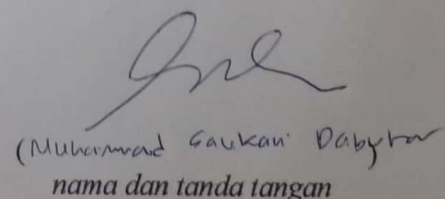 (Muhammad Saukani
nama dan tanda tangan